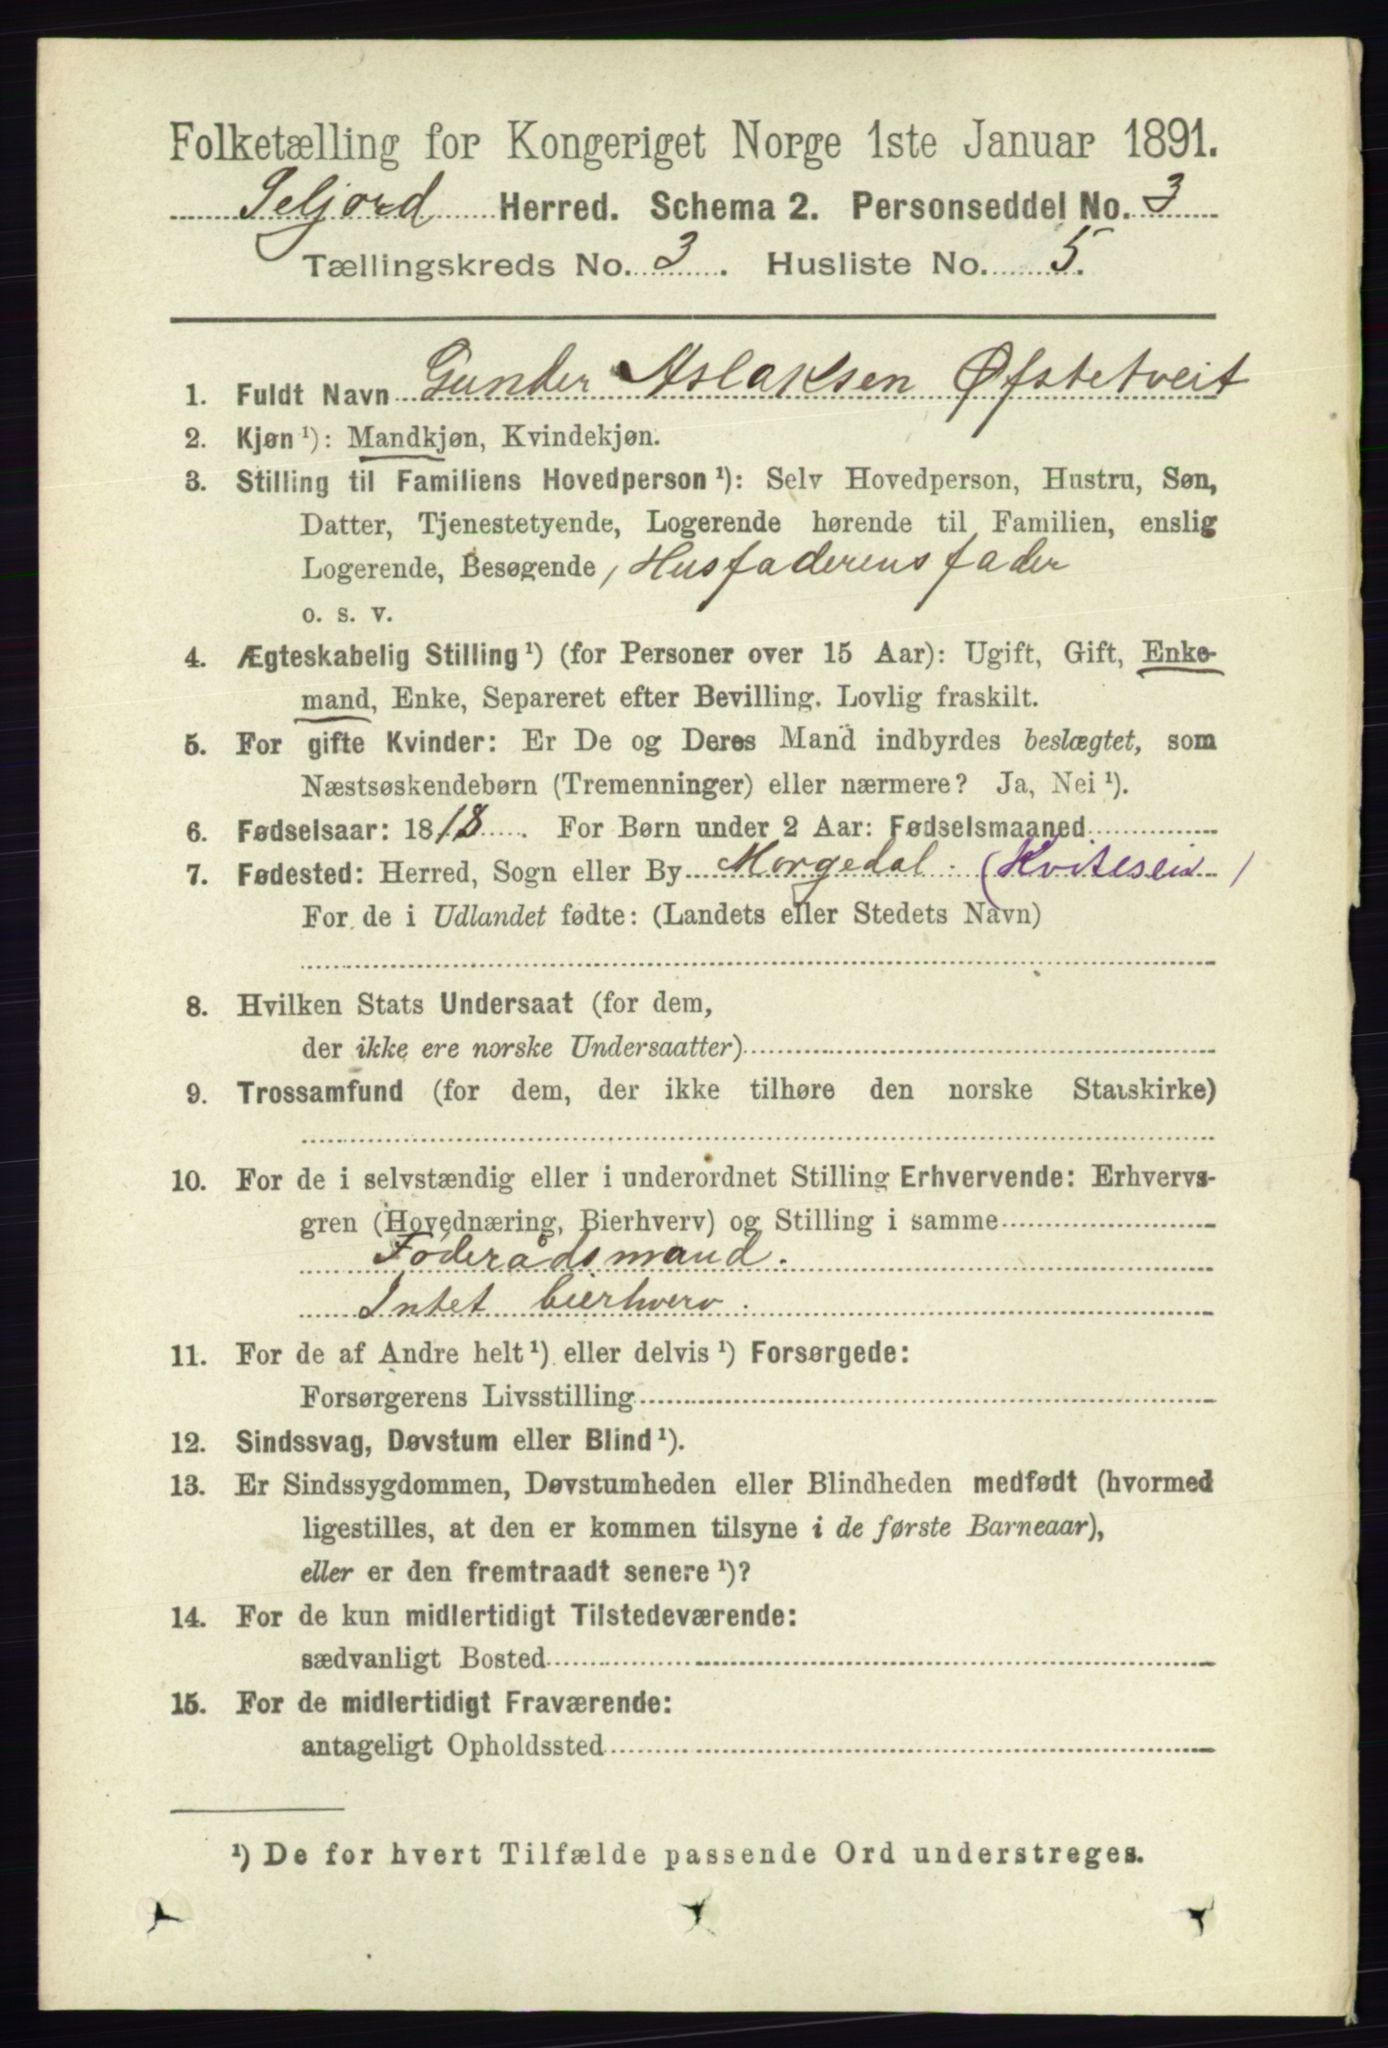 Folketælling for Kongeriget Norge 1ste Januar 1891.
Seljord Herred. Schema 2. Personseddel No. 3
Tællingskreds No. 3. Husliste No. 5.
1. Fuldt Navn Gunder Aslaksen Øfstetveit
2. Kjøn ¹): Mandkjøn, Kvindekjøn.
3. Stilling til Familiens Hovedperson ¹): Selv Hovedperson, Hustru, Søn,
Datter, Tjenestetyende, Logerende hørende til Familien, enslig
Logerende, Besøgende, Husfaderens fader
o. s. v.
4. Ægteskabelig Stilling ¹) (for Personer over 15 Aar): Ugift, Gift, Enke-
mand, Enke, Separeret efter Bevilling. Lovlig fraskilt.
5. For gifte Kvinder: Er De og Deres Mand indbyrdes beslægtet, som
Næstsøskendebørn (Tremenninger) eller nærmere? Ja, Nei ¹).
6. Fødselsaar: 1818. For Børn under 2 Aar: Fødselsmaaned
7. Fødested: Herred, Sogn eller By Morgedal. (Kviteseid)
For de i Udlandet fødte: (Landets eller Stedets Navn)
8. Hvilken Stats Undersaat (for dem,
der ikke ere norske Undersaatter)
9. Trossamfund (for dem, der ikke tilhøre den norske Statskirke)
10. For de i selvstændig eller i underordnet Stilling Erhvervende: Erhvervs-
gren (Hovednæring, Bierhverv) og Stilling i samme
Føderådsmand.
Intet bierhverv.
11. For de af Andre helt ¹) eller delvis ¹) Forsørgede:
Forsørgerens Livsstilling
12. Sindssvag, Døvstum eller Blind ¹).
13. Er Sindssygdommen, Døvstumheden eller Blindheden medfødt (hvormed
ligestilles, at den er kommen tilsyne i de første Barneaar),
eller er den fremtraadt senere ¹)?
14. For de kun midlertidigt Tilstedeværende:
sædvanligt Bosted
15. For de midlertidigt Fraværende:
antageligt Opholdssted
¹) De for hvert Tilfælde passende Ord understreges.